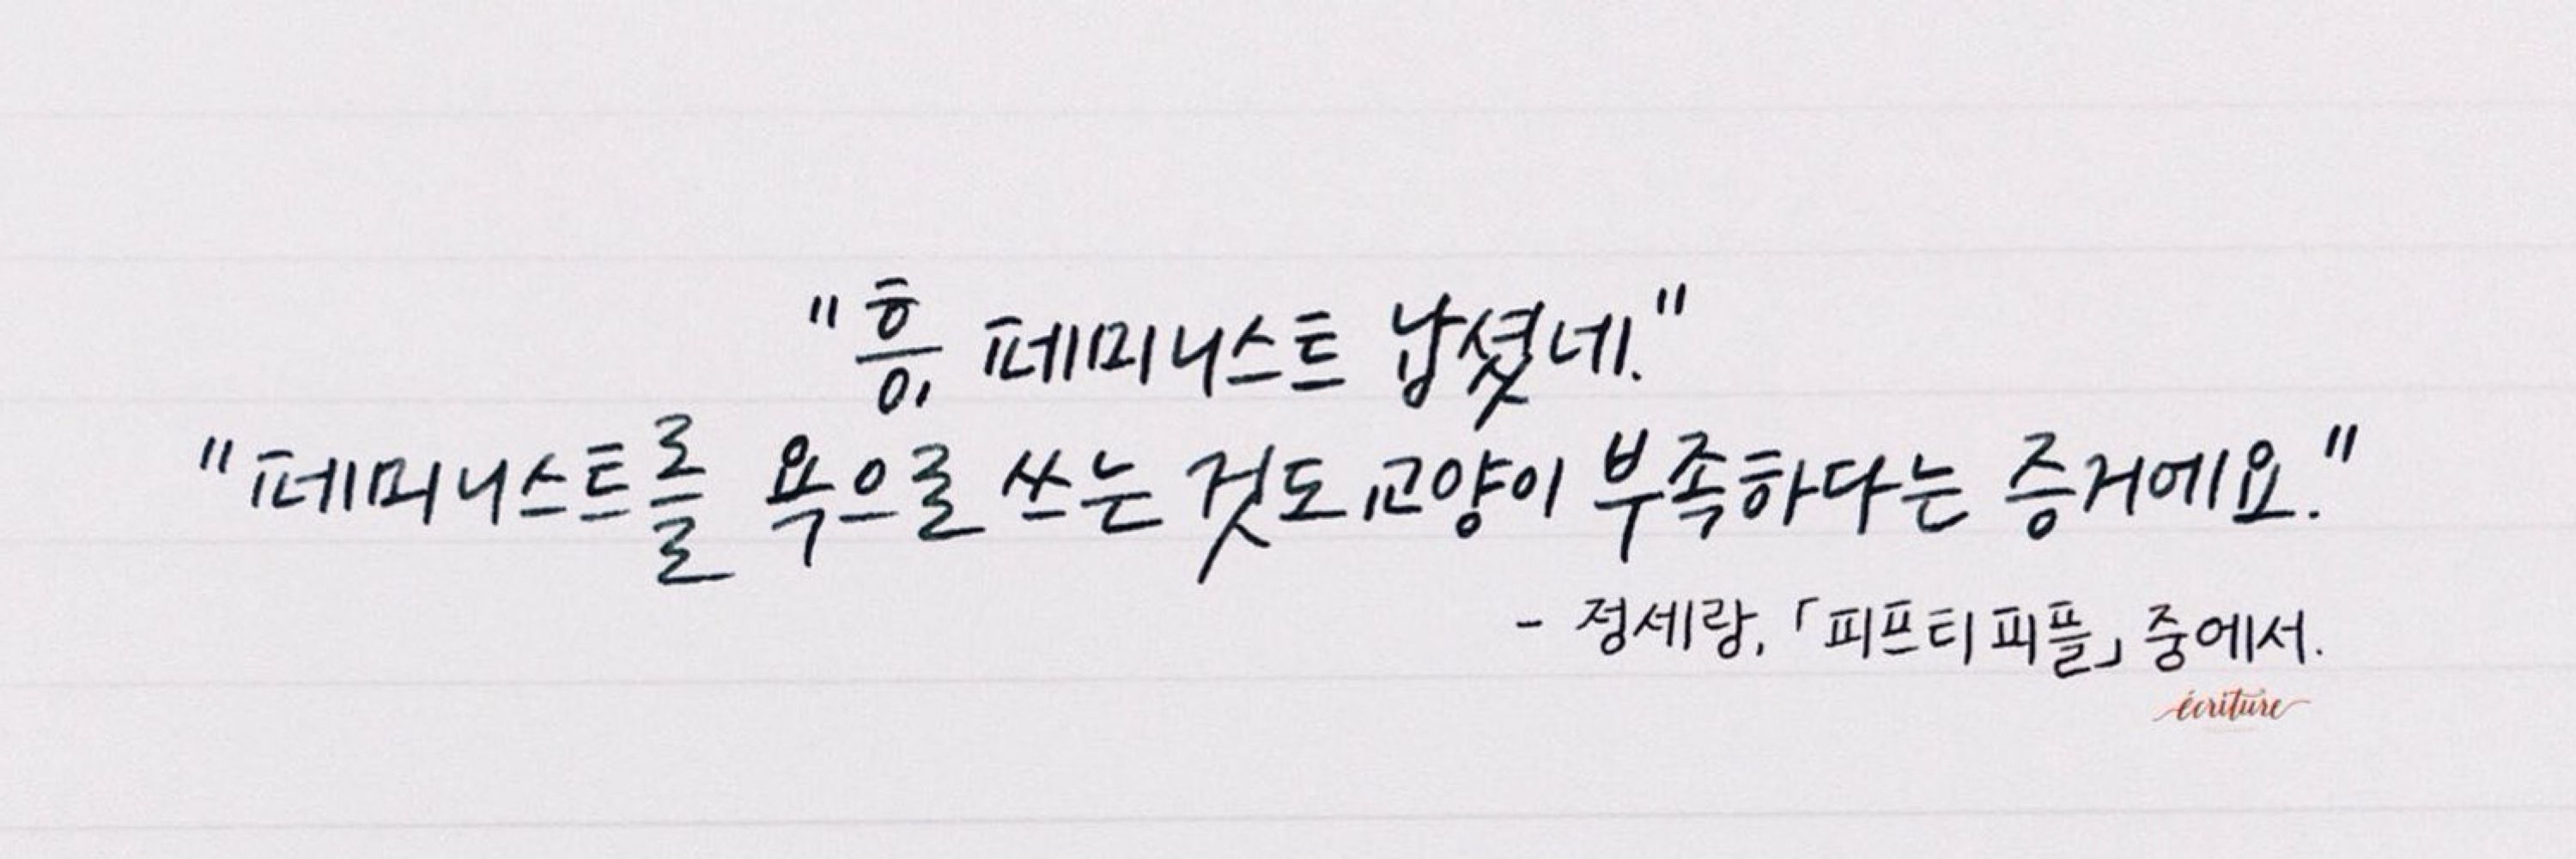 "흥, 페미니스트 납셨네."
"페미니스트를 욕으로 쓰는 것도 교양이 부족하다는 증거에요."
- 정세랑, 「피프티 피플」 중에서.
écriture